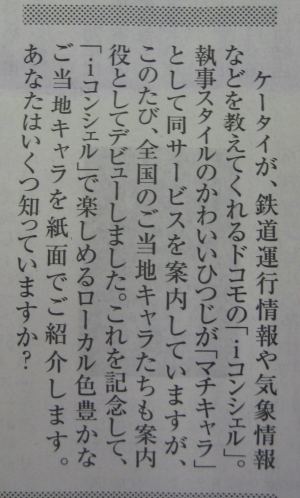 ケータイが、鉄道運行情報や気象情報
などを教えてくれるドコモの「ｉコンシェル」。
執事スタイルのかわいいひつじが「マチキャラ」
として同サービスを案内していますが、
このたび、全国のご当地キャラたちも案内
役としてデビューしました。これを記念して、
「ｉコンシェル」で楽しめるローカル色豊かな
ご当地キャラを紙面でご紹介します。
あなたはいくつ知っていますか？